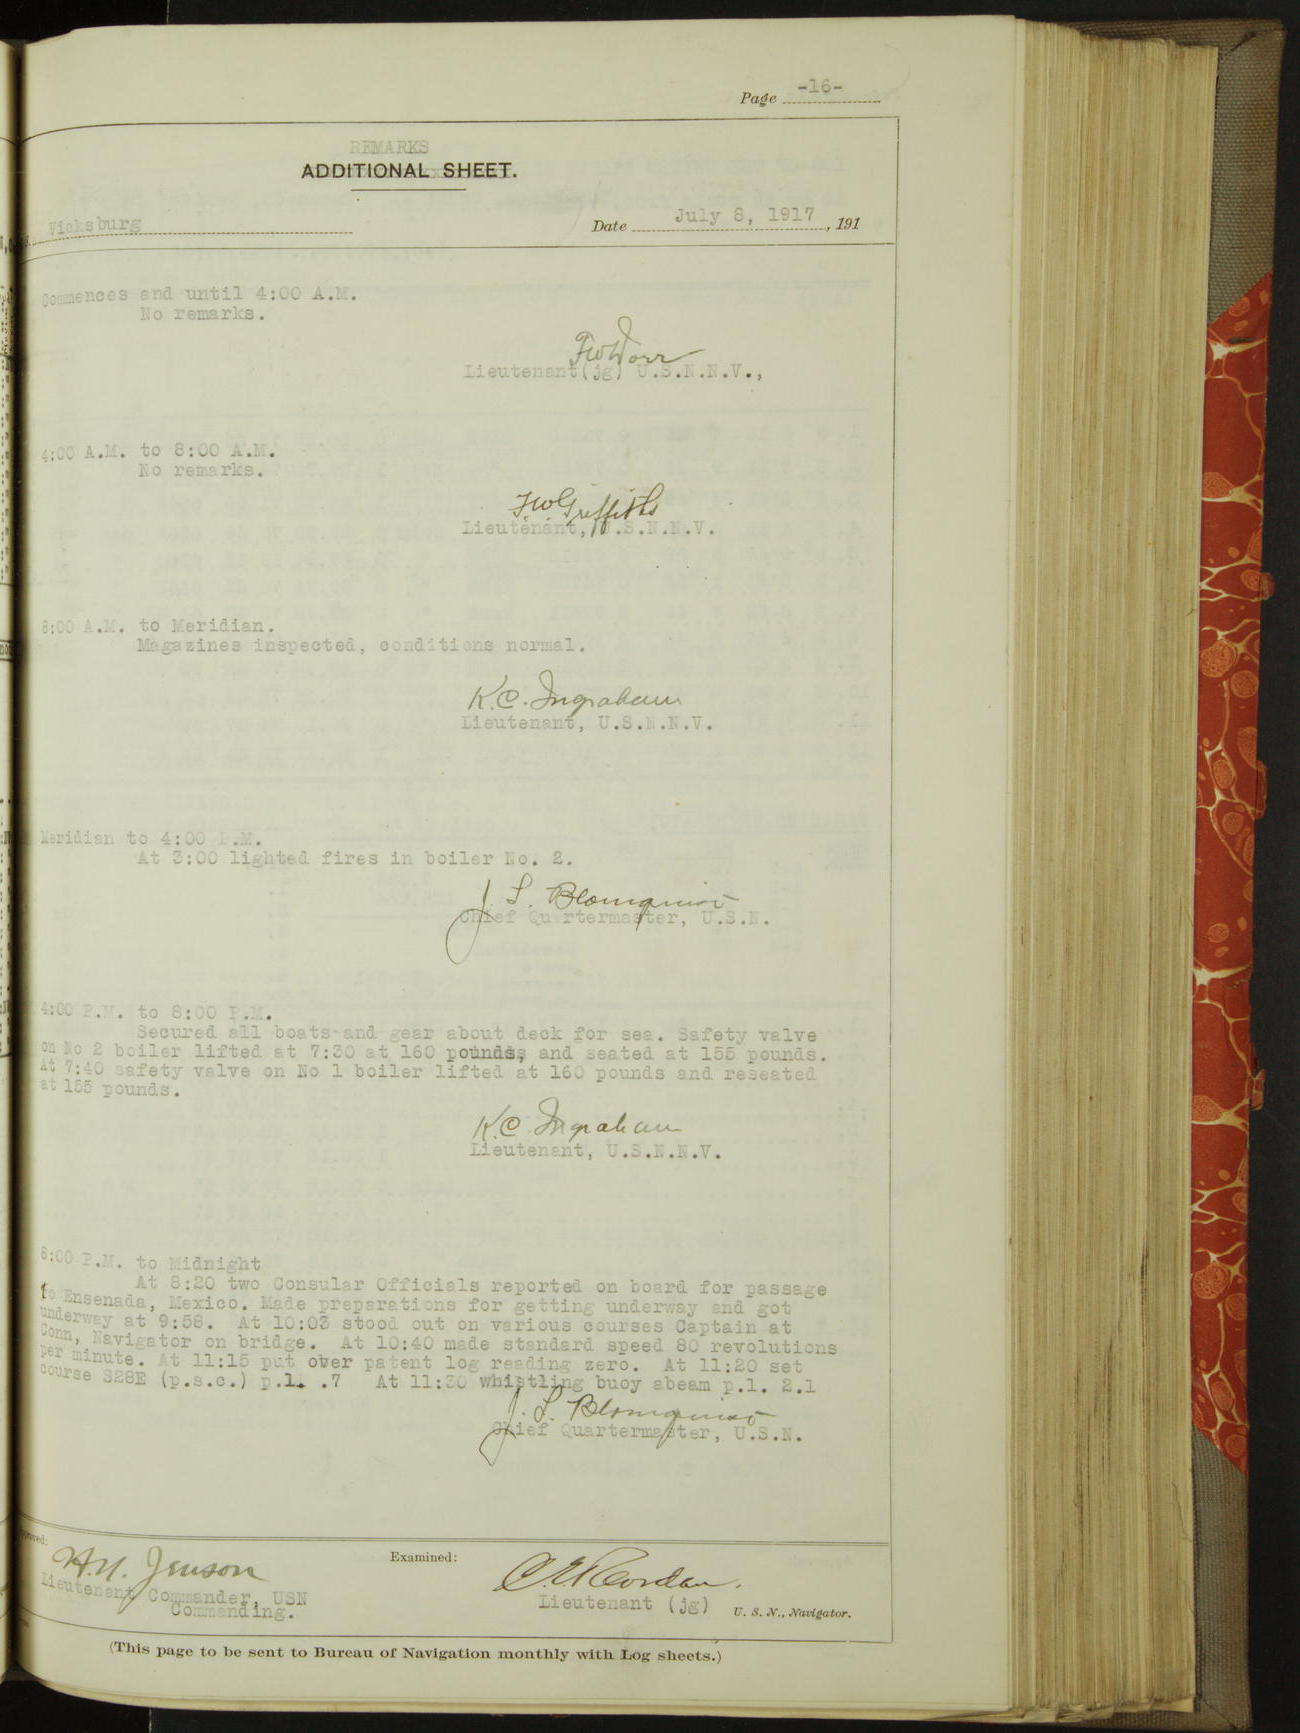 Page -16-
REMARKS
ADDITIONAL SHEET.
Vicksburg
Date July 8, 1917, 191
Commences and until 4:00 A.M.
No remarks.
F W Dorr
Lieutenant(jg) U.S.N.N.V.,
4:00 A.M. to 8:00 A.M.
No remarks.
F W Griffiths
Lieutenant, U.S.N.N.V.
8:00 A.M. to Meridian.
Magazines inspected, conditions normal.
K.C. Ingraham
Lieutenant, U.S.N.N.V.
Meridian to 4:00 P.M.
At 3:00 lighted fires in boiler No. 2.
J. L. Blomquist
Chief Quartermaster, U.S.N.
4:00 P.M. to 8:00 P.M.
Secured all boats and gear about deck for sea. Safety valve
on No 2 boiler lifted at 7:30 at 160 pounds, and seated at 155 pounds.
At 7:40 safety valve on No 1 boiler lifted at 160 pounds and reseated
at 155 pounds.
K.C. Ingraham
Lieutenant, U.S.N.N.V.
8:00 P.M. to Midnight
At 8:20 two Consular Officials reported on board for passage
to Ensenada, Mexico. Made preparations for getting underway and got
underway at 9:58. At 10:03 stood out on various courses Captain at
Conn, Navigator on bridge. At 10:40 made standard speed 80 revolutions
per minute. At 11:15 put over patent log reading zero. At 11:20 set
course S28E (p.s.c.) p.l. .7 At 11:30 whistling buoy abeam p.l. 2.1
J. L. Blomquist
Chief Quartermaster, U.S.N.
Lieutenant Commander, USN
Commanding.
Examined:
Lieutenant (jg) U. S. N., Navigator.
(This page to be sent to Bureau of Navigation monthly with Log sheets.)